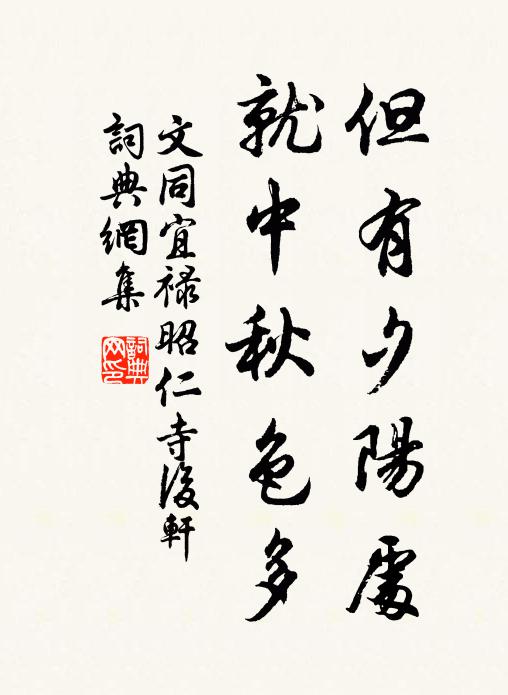 但有夕陽處
就中秋色多
文同宜祿昭仁寺後軒
詞典網集
詞典網印